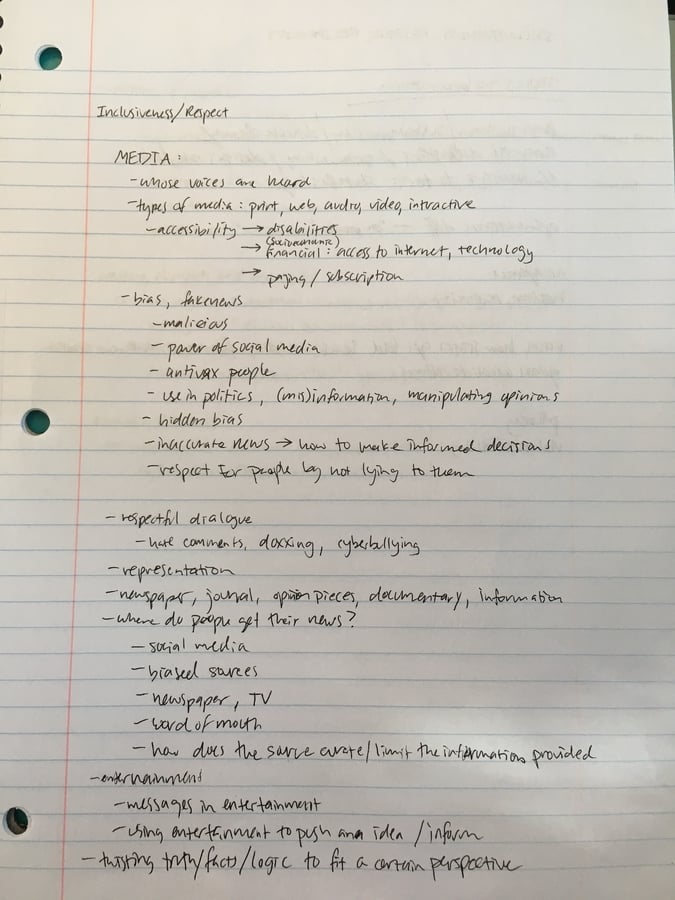 Inclusiveness/Respect
MEDIA:
-whose voices are heard
-types of media: print, web, audio, video, intractive
-accessibility → disabilities
(socioeconomic)
→ financial: access to internet, technology
→ paying/subscription
-bias, fakenews
-malicious
-power of social media
-antivax people
-use in politics, (mis)information, manipulating opinions
-hidden bias
-inaccurate news → how to make informed decisions
-respect for people by not lying to them
-respectful dialogue
-hate comments, doxxing, cyberbullying
-representation
-newspaper, journal, opinion pieces, documentary, information
-where do people get their news?
-social media
-biased sources
-newspaper, TV
-word of mouth
-how does the source curate/limit the information provided
-entertainment
-messages in entertainment
-using entertainment to push an idea/inform
-twisting truth/facts/logic to fit a certain perspective